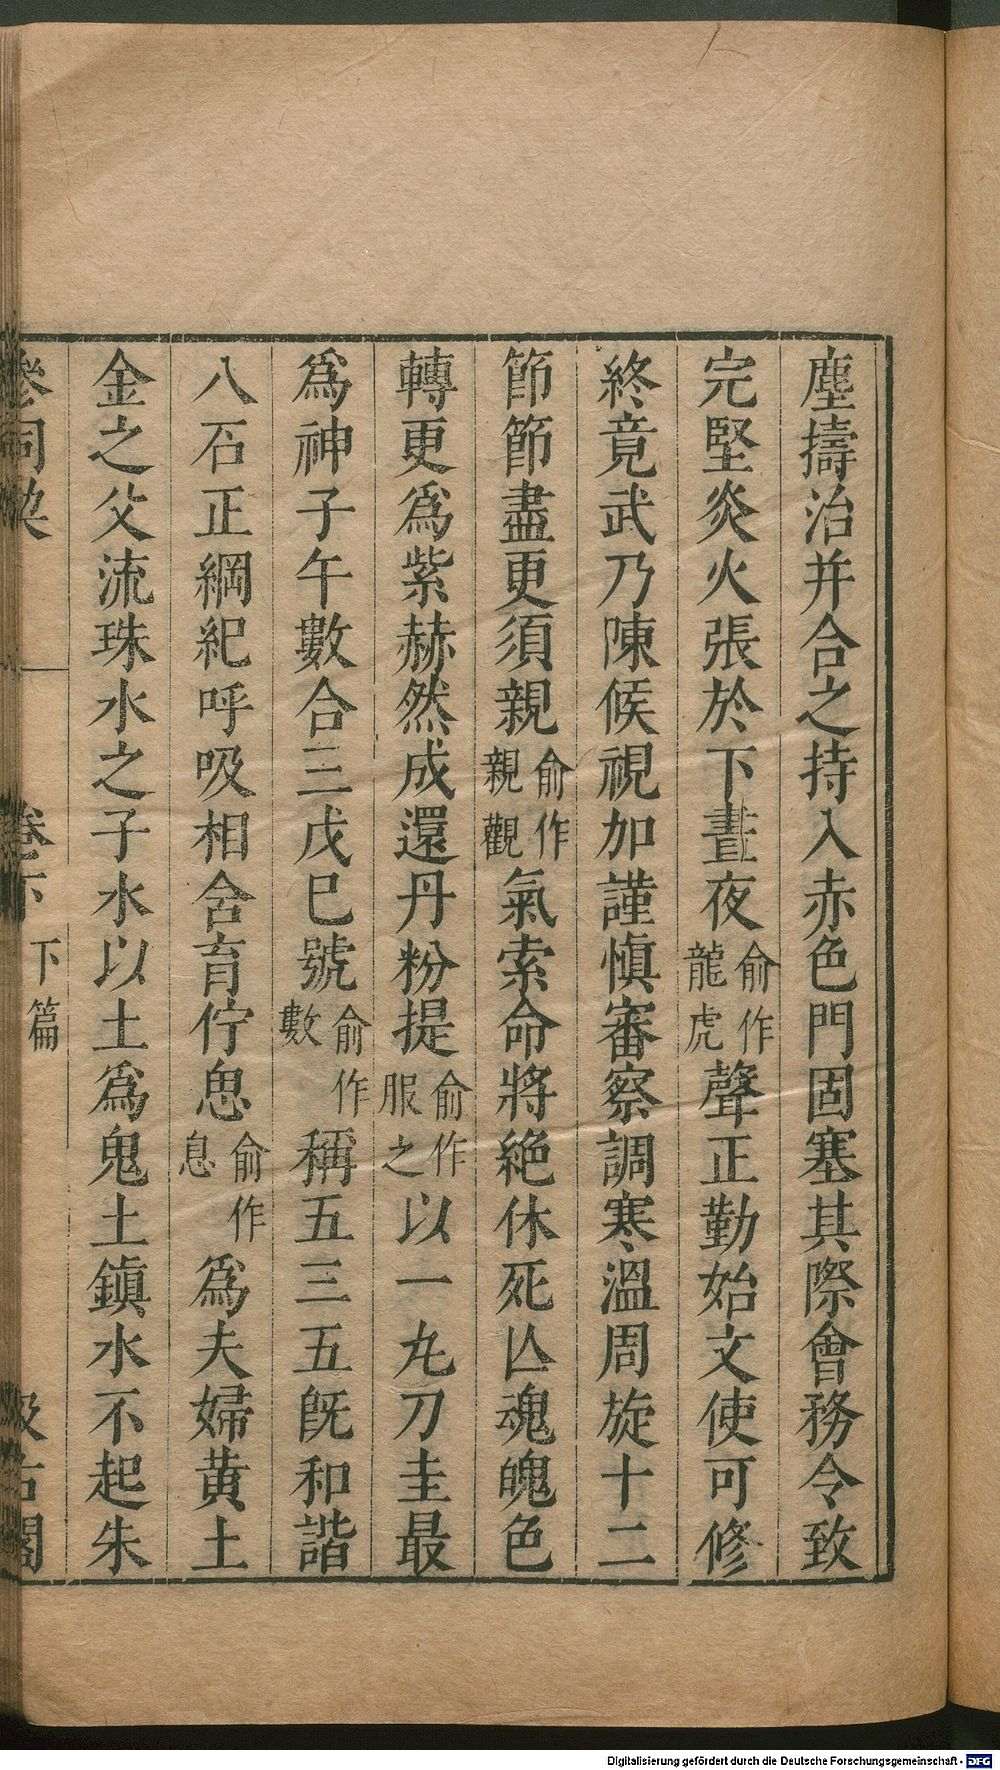 塵擣治并合之持入赤色門固塞其際會務令致
完堅炎火張於下晝夜俞作龍虎聲正勤始文使可修
終竟武乃陳候視加謹愼審察調寒溫周旋十二
節節盡更須親俞作親觀氣索命將絶休死亾魂魄色
轉更爲紫赫然成還丹粉提俞作服之以一丸刀圭最
爲神子午數合三戊巳號俞作數稱五三五旣和諧
八石正綱紀呼吸相含育佇思俞作息爲夫婦黃土
金之父流珠水之子水以土爲鬼土鎮水不起朱
下篇
Digitalisierung gefördert durch die Deutsche Forschungsgemeinschaft - DFG